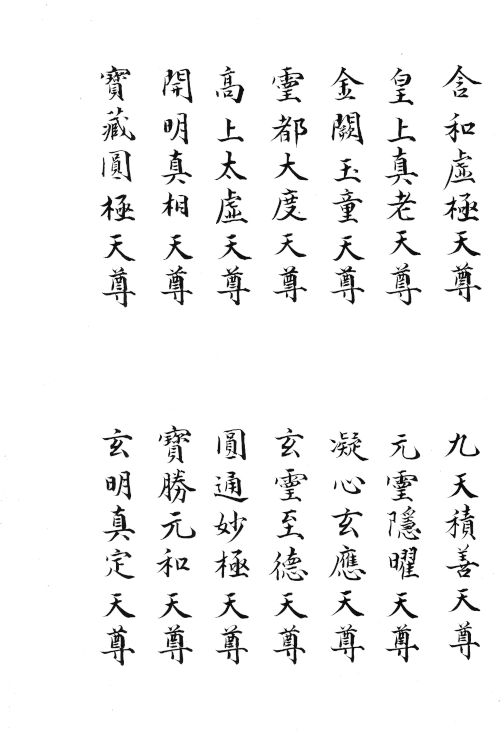 含和虛極天尊
九天積善天尊
皇上真老天尊
元靈隱曜天尊
金闕玉童天尊
凝心玄應天尊
靈都大度天尊
玄靈至德天尊
高上太虛天尊
圓通妙極天尊
開明真相天尊
寶勝元和天尊
寶藏圓極天尊
玄明真定天尊